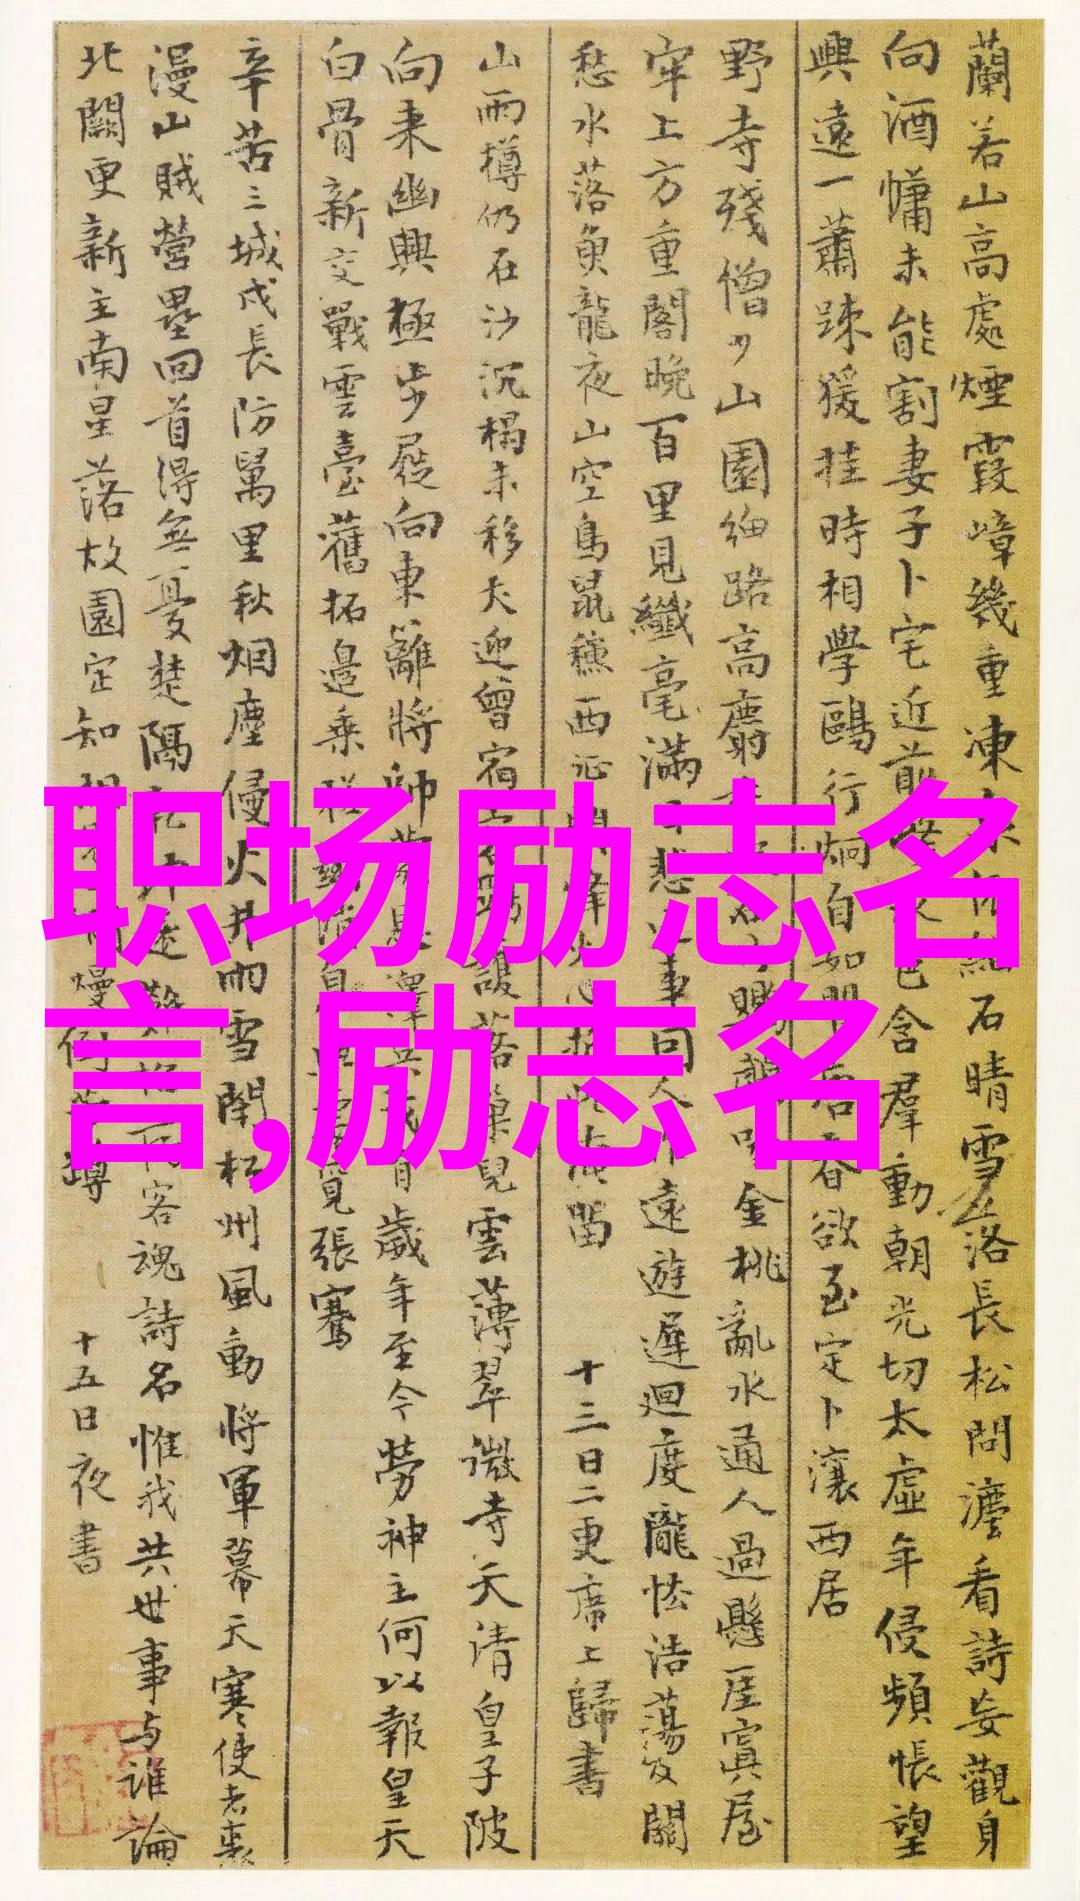 蘭若山高處煙霞嶂幾重凍
石晴雪落長松問瀍看詩妄觀身
向酒慵未能割妻子卜宅近前
含羣動朝光切太虛年侵頻悵望
興遠一蕭踈猨挂時相學鷗行炯自如
春欲至定卜瀼西居
野寺殘僧少山園細路高麝
金桃亂水通人過懸厓寘屋
牢上方重閣晚百里見纖毫滿目悲
事因人作遠遊遲迴度隴怯浩蕩及關
愁水落魚龍夜山空鳥鼠穐西征
留 十三日二更席上歸書
山雨樽仍在沙沉榻未移犬迎曾宿
護落巢兒雲薄翠微寺天清皇子陂
向来幽興極步屐向東籬將帥蒙恩澤
兵戈有歲年至今勞神主何以報皇天
白骨新交戰雲臺舊拓邉乗
覓張騫
辛苦三城戍長防萬里秋烟塵侵火井雨雪閉松州風動將軍幕天寒使者裘
漫山賊營壘回首得無憂楚隔
客魂詩名惟我共世事与誰論
北闕更新主南星落故園定知相
慢倒芳罇 十五日夜書
职场励志名
言,励志名